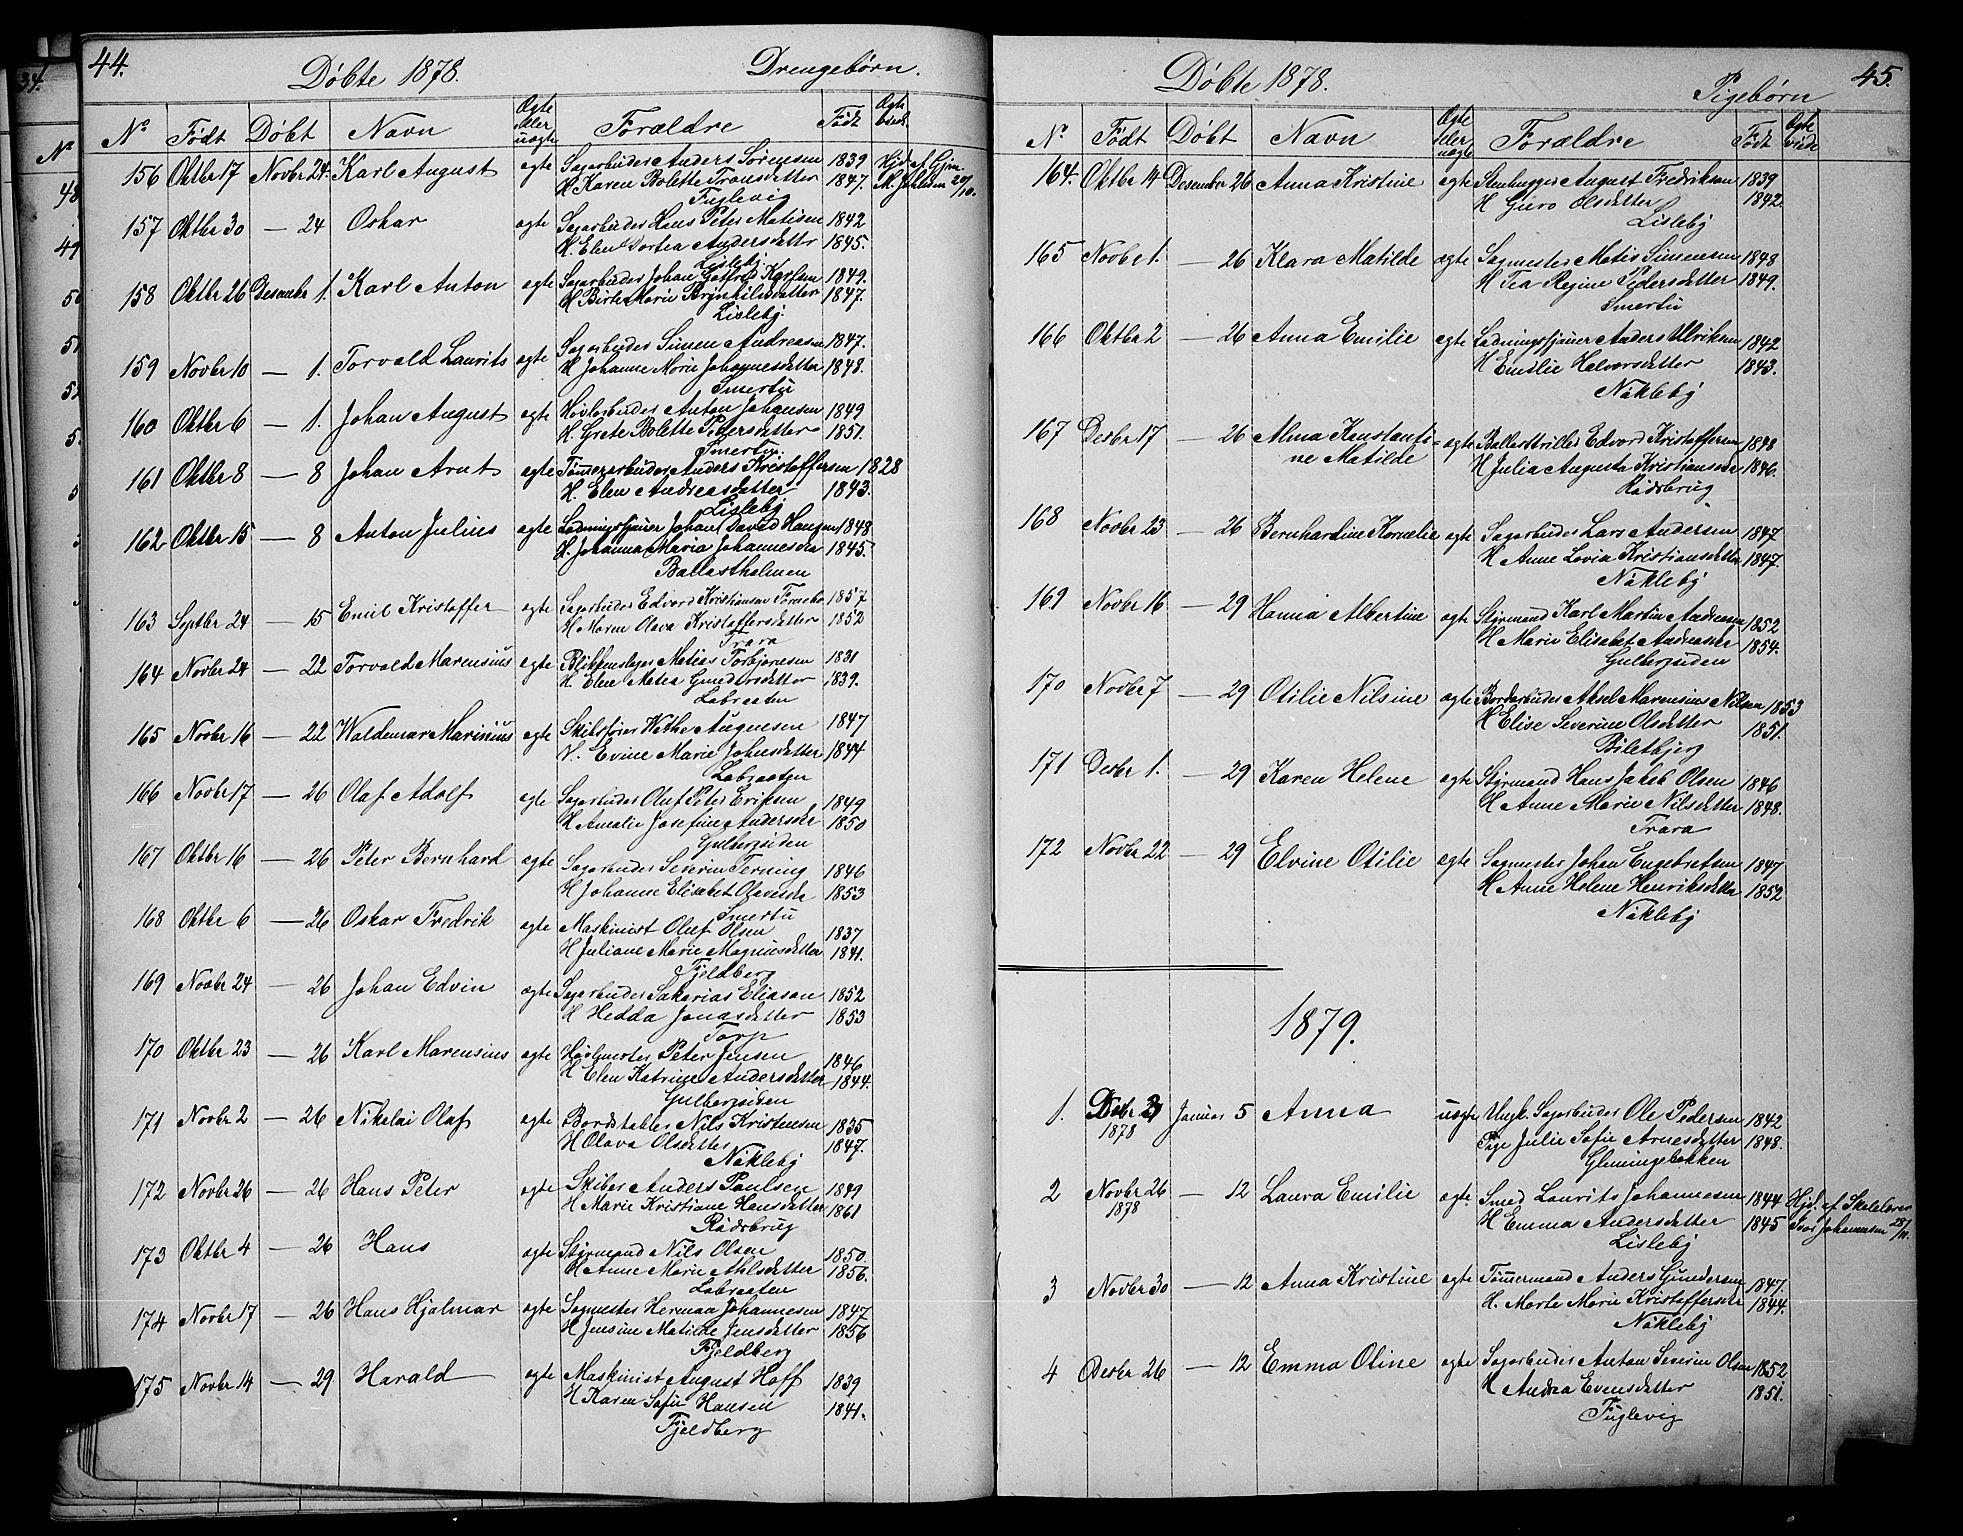 44.
Döbte 1878.
Drengebørn.
No Født Döbt Navn Ægte eller uægte Forældre Født
156 Oktbr 17 Novbr 24. Karl August ægte Sagarbeider Anders Sörensen 1839
H Karen Bolette Fransdatter 1847.
Fuglevig
157 Oktbr 30 — 24 Oskar ægte Sagarbeider Hans Peter Matisen 1842
H. Elen Dortea Andersdatter 1845.
Lisleby.
158 Oktbr 26 Desember 1. Karl Anton ægte Sagarbeider Johan Karlsen 1849.
H Birte Marie Brynhildsdatter 1847.
Lisleby
159 Novbr 10 — 1. Torvald Laurits ægte Sagarbeider Simen Andreasen 1847.
H Johanne Marie Johannesdatter 1848.
Smertu
160 Oktbr 6 — 1. Johan August ægte Høvlarbeider Anton Johansen 1849
H. Grete Bolette Pedersdatter 1851.
Smertu.
161 Oktbr 8 — 8 Johan Arnt ægte Tømerarbeider Anders Kristoffersen 1828
H. Elen Andreasdatter 1843.
Lisleby
162 Oktbr 15 — 8 Anton Julius ægte Ladningsfører Johan David Haugen 1848
H. Johanna Maria Johannesdtr 1845.
Ballastholmen
163 Septbr 24 — 15 Emil Kristoffer ægte Sagarbeider Edvard Kristiansen 1857
H Maren Olava Kristoffersdatter 1852
Trara
164 Novbr 24 — 22 Torvald Marensius ægte Blikkenslager Matias Torbjørnsen 1831
H. Elen Matea 1839.
Labraaten
165 Novbr 16 — 22 Waldemar Marinius ægte Skibsfører Augnesen 1847
H. Evine Marie Johnsdatter 1844
Labraaten
166 Novbr 17 — 26 Olaf Adolf ægte Sagarbeider Oluf Peter Eriksen 1849
H Amalie Josefine Andersdtr 1850
Gulbergsiden
167 Oktbr 16 — 26 Peter Bernhard ægte Sagarbeider Severin Terning 1846
H Johanne Elisabet 1853
Smertu
168 Oktbr 6 — 26 Oskar Fredrik ægte Maskinist Oluf Olsen 1837
H Juliane Marie Magnusdatter 1841.
Fjeldberg
169 Novbr 24 — 26 Johan Edvin ægte Sagarbeider Sakarias Eliasen 1852
H Hedda Jonasdatter 1853
Torp
170 Oktbr 23 — 26 Karl Marensius ægte Høvlmester Peter Jensen 1846
H Elen Katrine Andersdatter 1844.
Gulbergsiden
171 Novbr 2 — 26 Nikolai Olaf ægte Bordstabler Nils Kristensen 1835
H Olava Olsdatter 1847.
Nökleby
172 Novbr 26 — 26 Hans Peter ægte Skiber Anders Paulsen 1849
H Marie Kristiane Hansdatter 1861
Rödsbrug
173 Oktbr 4 — 26 Hans ægte Styrmand Nils Olsen 1850.
H Anne Marie 1856.
Labraaten
174 Novbr 17 — 26 Hans Hjalmar ægte Sagmester Herman Johannesen 1847
H Jensine Matilde Jensdatter 1856
Fjeldberg
175 Novbr 14 — 29 Harald ægte Maskinist August Hoff 1839
H Karen Sofie Hansen 1841.
Fjeldberg
45.
Döbte 1878.
Pigebørn
No Født Döbt Navn Ægte eller uægte Forældre Født
164. Oktbr 14 Desember 26 Anna Kristine ægte Stenhugger August Fredriksen 1839
H Guro Olsdatter 1842.
Lisleby
165 Novbr 1. — 26 Klara Matilde ægte Sagmester Matis Simensen 1848
H Tea Regine Pedersdatter 1849.
Smertu
166 Oktbr 2 — 26 Anna Emilie ægte Ladningsfører Anders Ulriksen 1842
H Emilie Halvorsdatter 1843.
Nökleby
167 Desbr 17 — 26 Alma Konstanti- ægte Ballasttriller Edvard Kristoffersen 1848
ne Matilde H Julia Augusta Kristiansdtr 1846.
Rödsbrug
168 Novbr 23 — 26 Bernhardine Kornelie ægte Sagarbeider Lars Andersen 1847
H Anne Lovia Kristiansdatter 1847.
Nökleby
169 Novbr 16 — 29 Hanna Albertine ægte Styrmand Karl Martin Andersen 1852
H Marie Elisabet Andreasdtr 1854.
Gulbergsiden
170 Novbr 7 — 29 Otilie Nilsine ægte Bordarbeider Aksel Marensius Nilsen 1853
H Elise Severine Olsdatter 1851.
Biletbjerg
171 Desbr 1. — 29 Karen Helene ægte Styrmand Hans Jakob Olsen 1846
H Anne Marie Nilsdatter 1848.
Trara
172 Novbr 22 — 29 Elvine Otilie ægte Sagmester Johan Engebretsen 1847
H Anne Helene Henriksdatter 1852
Nökleby
1879.
1. Januar 5 Anna uægte Ungk. Sagarbeider Ole Pedersen 1842
1878 Pige Julie Sofie Arnesdatter 1848.
Glemingebakken
2 Novbr 26 — 12 Laura Emilie ægte Smed Laurits Johannesen 1844 Hjd. af Skolelærer
1878 H Emma Andersdatter 1845 Johannesen 28/11.
Lisleby
3 Novbr 30 — 12 Anna Kristine ægte Tømmermand Anders Gundersen 1847
H. Marte Marie Kristoffersdtr 1844.
Nökleby
4 Desbr 26 — 12 Emma Otine ægte Sagarbeider Anton Severin Olsen 1852
H Andrea Evensdatter 1851.
Fuglevig